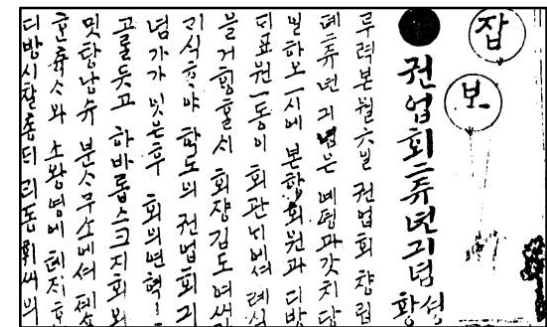 잡보
권업회二쥬년긔념 황성
루력본월六일 권업회 챵립
데二쥬년긔념은 예뎡과갓치 당
일하오一시에 본항회원과 디방
디표원一동이 회관니에셔 례식
을거힝홀시 회쟝김도여씨
긔식ᄒᆞ야 학도의 권업회긔
념가가 잇은후 회의년혁
고를듯고 하바롭스크지회와
밋탕남슈 분ᄉᆞ무소에셔
츅ᄉᆞ와 소왕영에
디방시찰총디 리동휘씨의